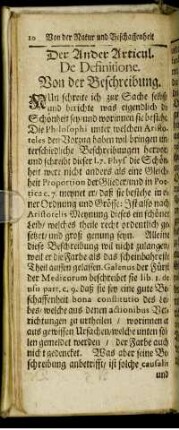 20 Von der Natur und Beschaffenheit
Der Ander Articul.
De Definitione.
Von der Beschreibung.
Nun schreite ich zur Sache selbst
und berichte was eigendlich die
Schönheit sey und worinnen sie bestehe
Die Philosophi unter welchen Aristo-
teles den Vorzug haben will bringen un-
terschiedliche Beschreibungen hervor
und schreibt dieser l. 7. Phys. die Schön-
heit were nichts anders als eine Gleich-
heit Proportion der Glieder und in Poe-
tica c. 7. meynet er / daß sie bestehe in ei-
ner Ordnung und Grösse: Ist also nach
Aristotelis Meynung dieses ein schöner
Leib / welches theils recht ordentlich ge-
setzet und groß genung seyn. Alleine
diese Beschreibung wil nicht zulangen /
weil er die Farbe als das scheinbahreste
Theil aussen gelassen. Galenus der Fürst
der Medicorum beschreibet sie lib. 1. de
usu part. c. 9. daß sie sey eine gute Be-
schaffenheit bona constitutio des Lei-
bes / welche aus denen actionibus Ver-
richtungen zu urtheilen / worinnen er
aus gewissen Ursachen / welche unten sol-
len gemeldet werden / der Farbe auch
nicht gedencket. Was aber seine Be-
schreibung anbetrifft / ist solche causalis
und